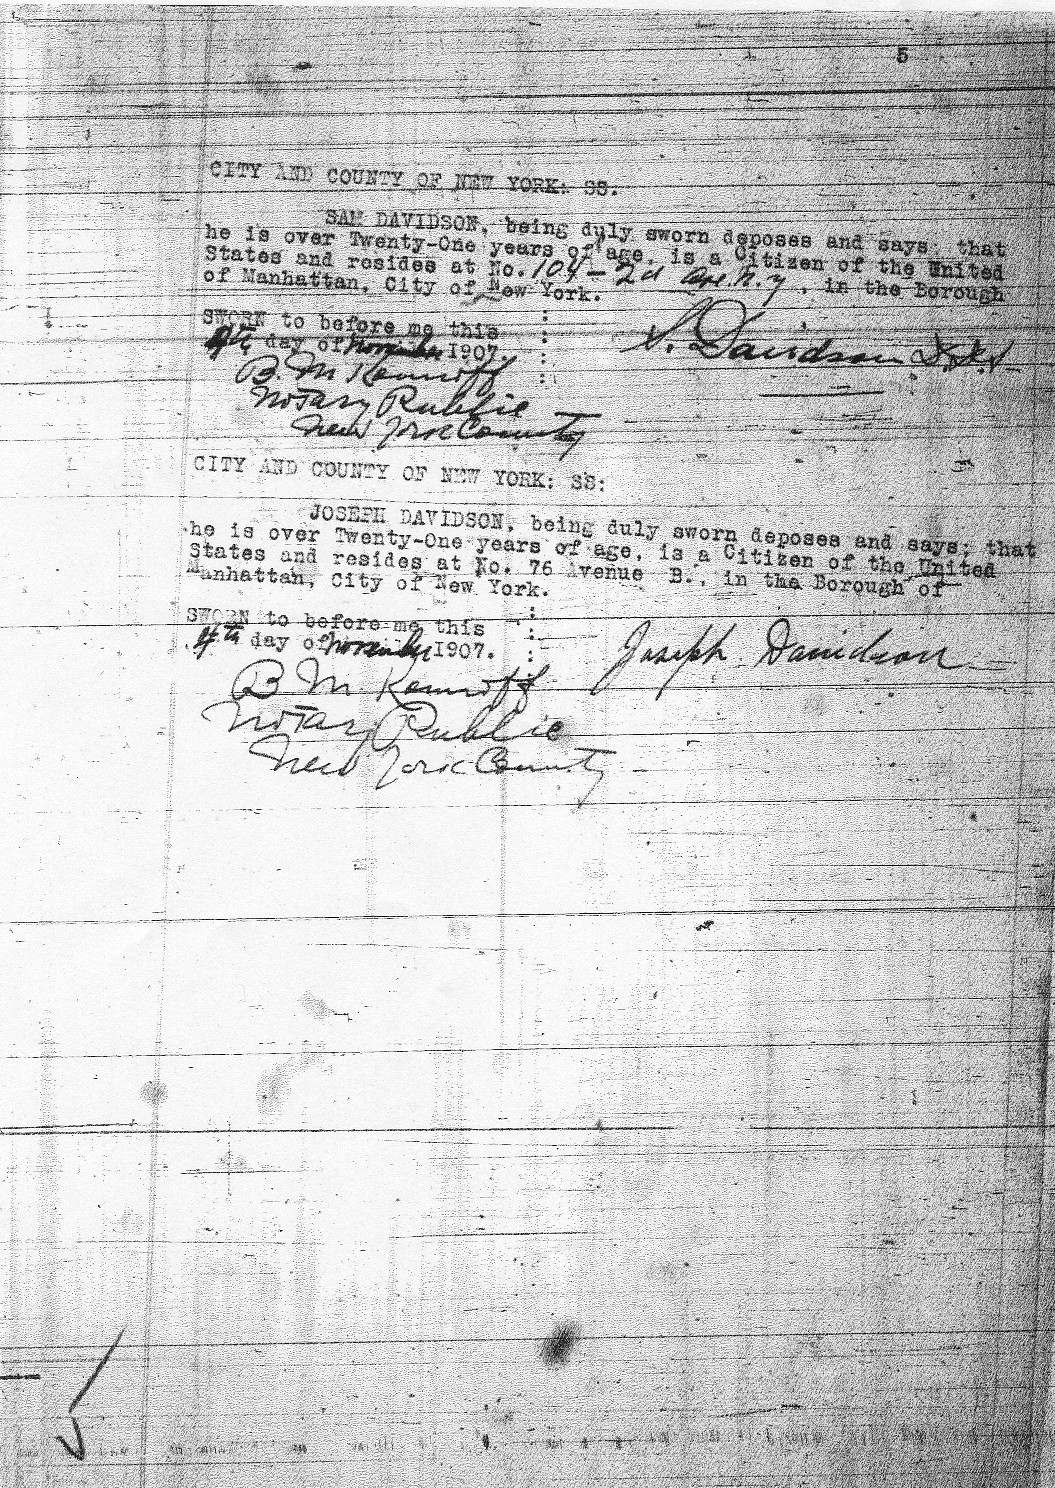 5
CITY AND COUNTY OF NEW YORK: SS.
SAM DAVIDSON, being duly sworn deposes and says; that
he is over Twenty-One years of age, is a Citizen of the United
States and resides at No. 104 - 2d Ave. N.Y., in the Borough
of Manhattan, City of New York.
SWORN to before me this
4th day of November 1907.
S. Davidson
B. M.
Notary Public
New York County
CITY AND COUNTY OF NEW YORK: SS:
JOSEPH DAVIDSON, being duly sworn deposes and says; that
he is over Twenty-One years of age, is a Citizen of the United
States and resides at No. 76 Avenue B., in the Borough of
Manhattan, City of New York.
SWORN to before me this
4th day of November 1907.
Joseph Davidson
B M.
Notary Public
New York County